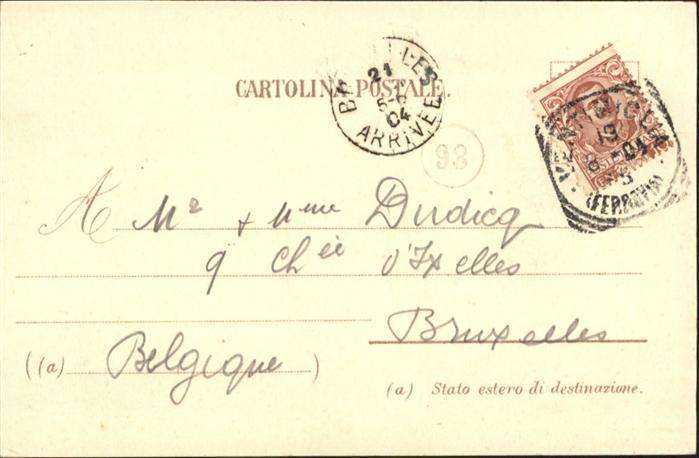 CARTOLINA POSTALE.
BRUXELLES
21
5-6
04
ARRIVÉE
93
(FERROVIA)
A Mr & Mme Dudicq
9 Chée d'Ixelles
Bruxelles
((a) Belgique)
(a) Stato estero di destinazione.